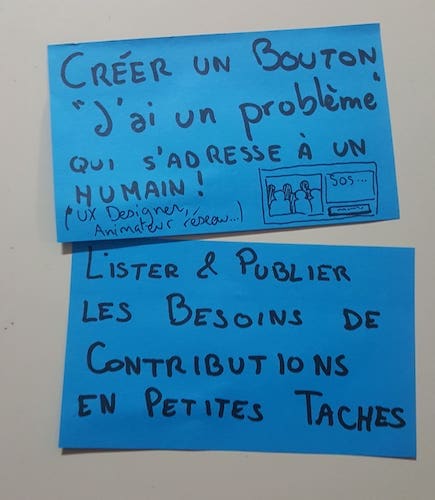 CRÉER UN BOUTON
"J'ai un problème"
QUI S'ADRESSE À UN
HUMAIN !
(UX Designer,
Animateur réseau...)
SOS...
LISTER & PUBLIER
LES BESOINS DE
CONTRIBUTIONS
EN PETITES TACHES